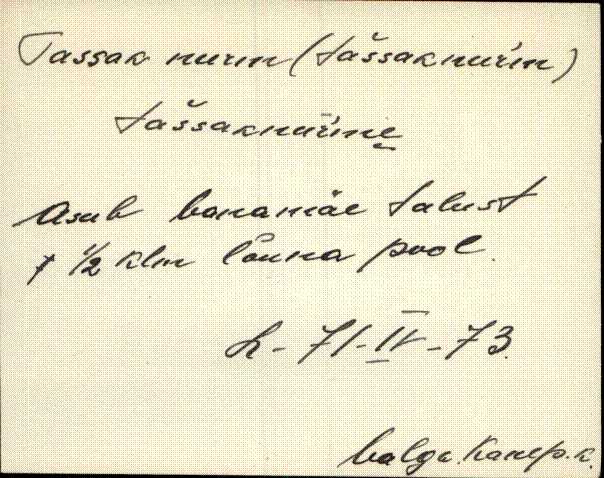 Tassak nurm (tàssaknurm)
tàssaknurme
Asub vanamäe talust
1/2 klm lõuna pool.
L-71-IV-73.
Valga. Kanep. k.